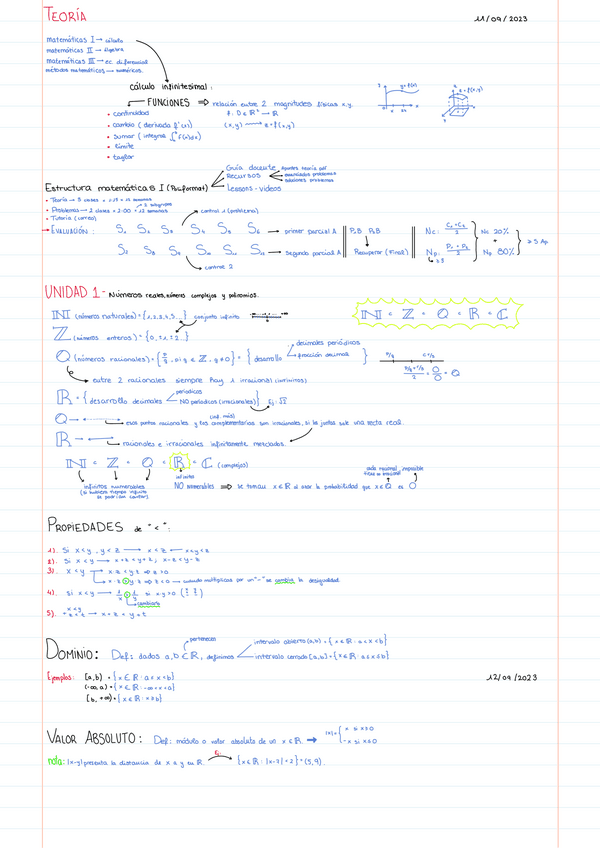 TEORÍA
11/09/2023
matemáticas I → cálculo
matemáticas II → álgebra
matemáticas III → ec. diferencial
métodos matemáticos → numéricos.
cálculo infinitesimal:
FUNCIONES ⇒ relación entre 2 magnitudes físicas x,y.
• continuidad
f: D ∈ ℝ² → ℝ
• cambio (derivada f'(x))
(x,y) → z = f(x,y)
• sumar (integral ∫ f(x)dx)
• límite
• taylor
y = f(x)
z = f(x,y)
Guía docente
Apuntes teoría pdf
RECURSOS
enunciados problemas
soluciones problemas
Lessons - vídeos
Estructura matemáticas I
• Teoría →
• Problemas → 2 clases
2 subgrupos
• Tutoría (correo)
→ EVALUACIÓN:
control 1 (problema)
S₁ S₂ S₃ S₄ S₅ S₆ → primer parcial A
P₁B P₂B
S₇ S₈ S₉ S₁₀ S₁₁ S₁₂ → segundo parcial A
Recuperar (Final)
control 2
Nc: (C₁+C₂)/2
Np: (P₁+P₂)/2
Nc 20%
+
Np 80%
≥ 5 Ap
UNIDAD 1 - Números reales, números complejos y polinomios.
ℕ (números naturales) = {1,2,3,4,5...} conjunto infinito
ℕ ⊂ ℤ ⊂ ℚ ⊂ ℝ ⊂ ℂ
ℤ (números enteros) = {0,±1,±2...}
ℚ (números racionales) = {p/q, p y q ∈ ℤ, q≠0} = { desarrollo
decimales periódicos
fracción decimal }
entre 2 racionales siempre hay 1 irracional (infinitos)
ℝ = {desarrollo decimales
periódicos
NO periódicos (irracionales)} Ej: √2
(inf. más)
ℚ → esos puntos racionales y los complementarios son irracionales, si los juntas sale una recta real.
ℝ → racionales e irracionales infinitamente mezclados.
ℕ ⊂ ℤ ⊂ ℚ ⊂ ℝ ⊂ ℂ (complejos)
infinitos numerables
(si hubiera tiempo infinito se podrían contar)
infinito
NO numerables ⇒ se toma x ∈ ℝ al azar la probabilidad que x ∈ ℚ es 0
PROPIEDADES de "<":
1). Si x<y, y<z → x<z
2). Si x<y → x+z<y+z; x-z<y-z
3). x<y
x·z<y·z ⇒ z>0
x·z > y·z ⇒ z<0 → cuando multiplicas por un "-" se cambia la desigualdad
4). si x<y → 1/x > 1/y si x,y>0
cambiarlo
5). x<y
+ z<t → x+z<y+t
DOMINIO: Def: dados a,b ∈ ℝ, definimos
pertenece
intervalo abierto (a,b) = {x ∈ ℝ : a<x<b}
intervalo cerrado [a,b] = {x ∈ ℝ : a≤x≤b}
Ejemplos: [a,b) = {x ∈ ℝ : a≤x<b}
12/09/2023
(-∞,a) = {x ∈ ℝ : -∞<x<a}
[b,+∞) = {x ∈ ℝ : x≥b}
VALOR ABSOLUTO: Def: módulo o valor absoluto de un x ∈ ℝ. ⇒ |x| = { x si x≥0
-x si x≤0
nota: |x-y| presenta la distancia de x a y en ℝ. Ej: {x ∈ ℝ : |x-7|<2} = (5,9).